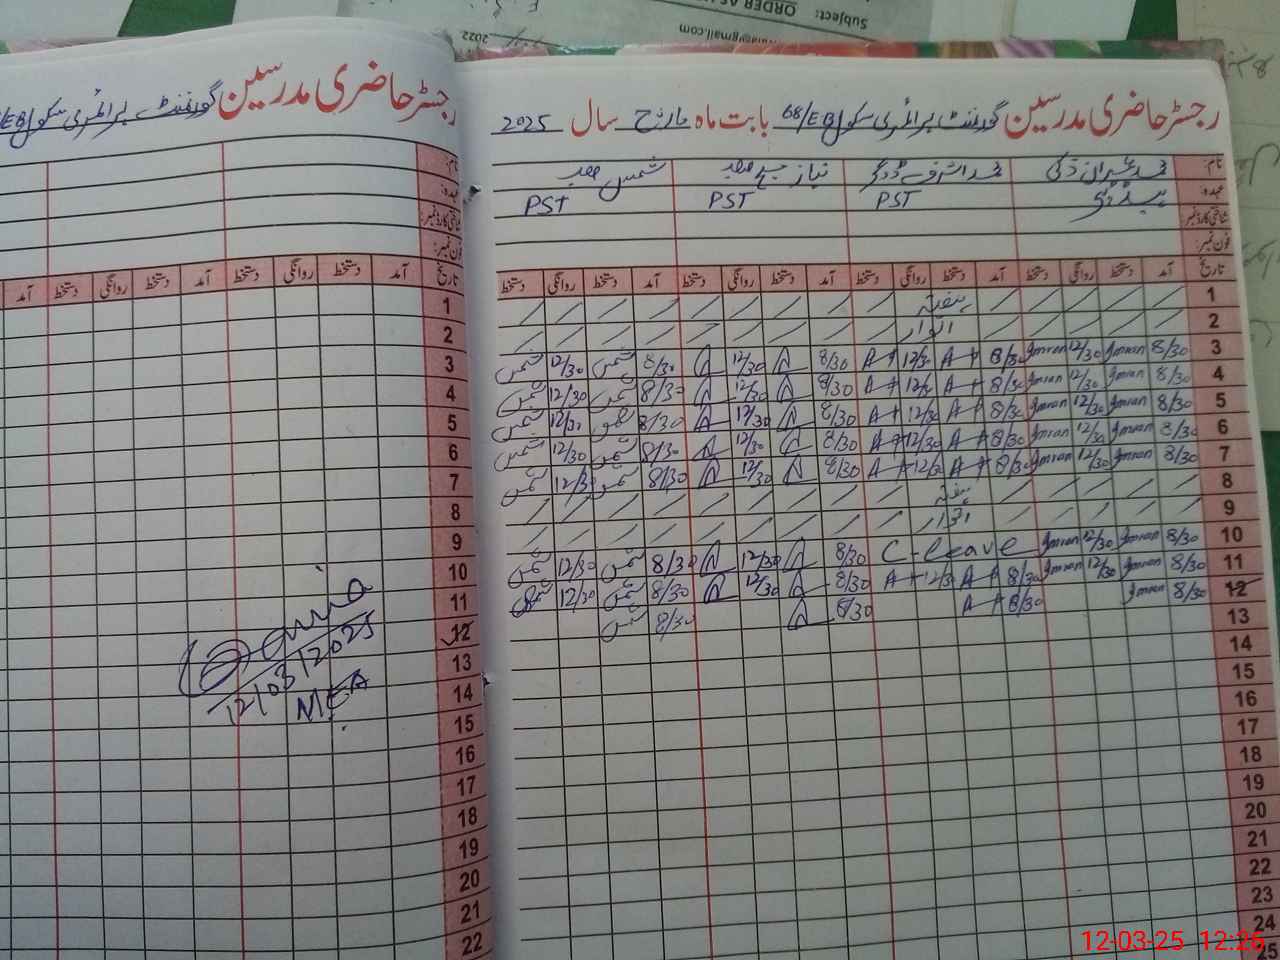 Subject:
ORDER AS
@gmail.com
2022
رجسٹر حاضری مدرسین گورنمنٹ پرائمری سکول
رجسٹر حاضری مدرسین گورنمنٹ پرائمری سکول 68/EB بابت ماہ مارچ سال 2025
نام: محمد عمران ذکی محمد اشرف نیاز شمس
عہدہ: PST PST PST
شناختی کارڈ نمبر:
فون نمبر:
تاریخ آمد دستخط روانگی دستخط آمد دستخط روانگی دستخط آمد دستخط روانگی دستخط آمد دستخط روانگی دستخط
1 ہفتہ
2 اتوار
3 8/30 Imran 12/30 Imran 8/30 A 12/30 A 8/30 12/30 8/30 شمس 12/30 شمس
4 8/30 Imran 12/30 Imran 8/30 A 12/30 A 8/30 12/30 8/30 شمس 12/30 شمس
5 8/30 Imran 12/30 Imran 8/30 A 12/30 A 8/30 12/30 8/30 شمس 12/30 شمس
6 8/30 Imran 12/30 Imran 8/30 A 12/30 A 8/30 12/30 8/30 شمس 12/30 شمس
7 8/30 Imran 12/30 Imran 8/30 A 12/30 A 8/30 12/30 8/30 شمس 12/30 شمس
8 ہفتہ
9 اتوار
10 8/30 Imran 12/30 Imran C-leave 8/30 12/30 8/30 شمس 12/30 شمس
11 8/30 Imran 12/30 Imran 8/30 A 12/30 A 8/30 12/30 8/30 شمس 12/30 شمس
12 8/30 Imran 8/30 A 8/30 8/30 شمس
13
14
15
16
17
18
19
20
21
22
23
24
25
تاریخ آمد دستخط روانگی دستخط آمد دستخط روانگی دستخط آمد
1
2
3
4
5
6
7
8
9
10
11
12
13
14
15
16
17
18
19
20
21
22
12/03/2025
MEA
12-03-25 12:26